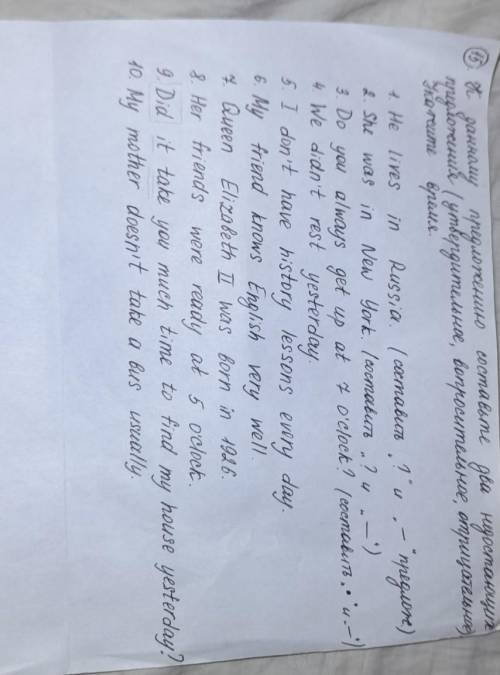 15. К данному предложению составьте два недостающих
предложения (утвердительное, вопросительное, отрицательное)
Укажите время.
1. He lives in Russia. (составить „?" и „–" предлож.)
2. She was in New York. (составить „? и „—")
3. Do you always get up at 7 o'clock? (составить „•" и „—")
4. We didn't rest yesterday.
5. I don't have history lessons every day.
6. My friend knows English very well.
7. Queen Elizabeth II was born in 1926.
8. Her friends were ready at 5 o'clock.
9. Did it take you much time to find my house yesterday?
10. My mother doesn't take a bus usually.